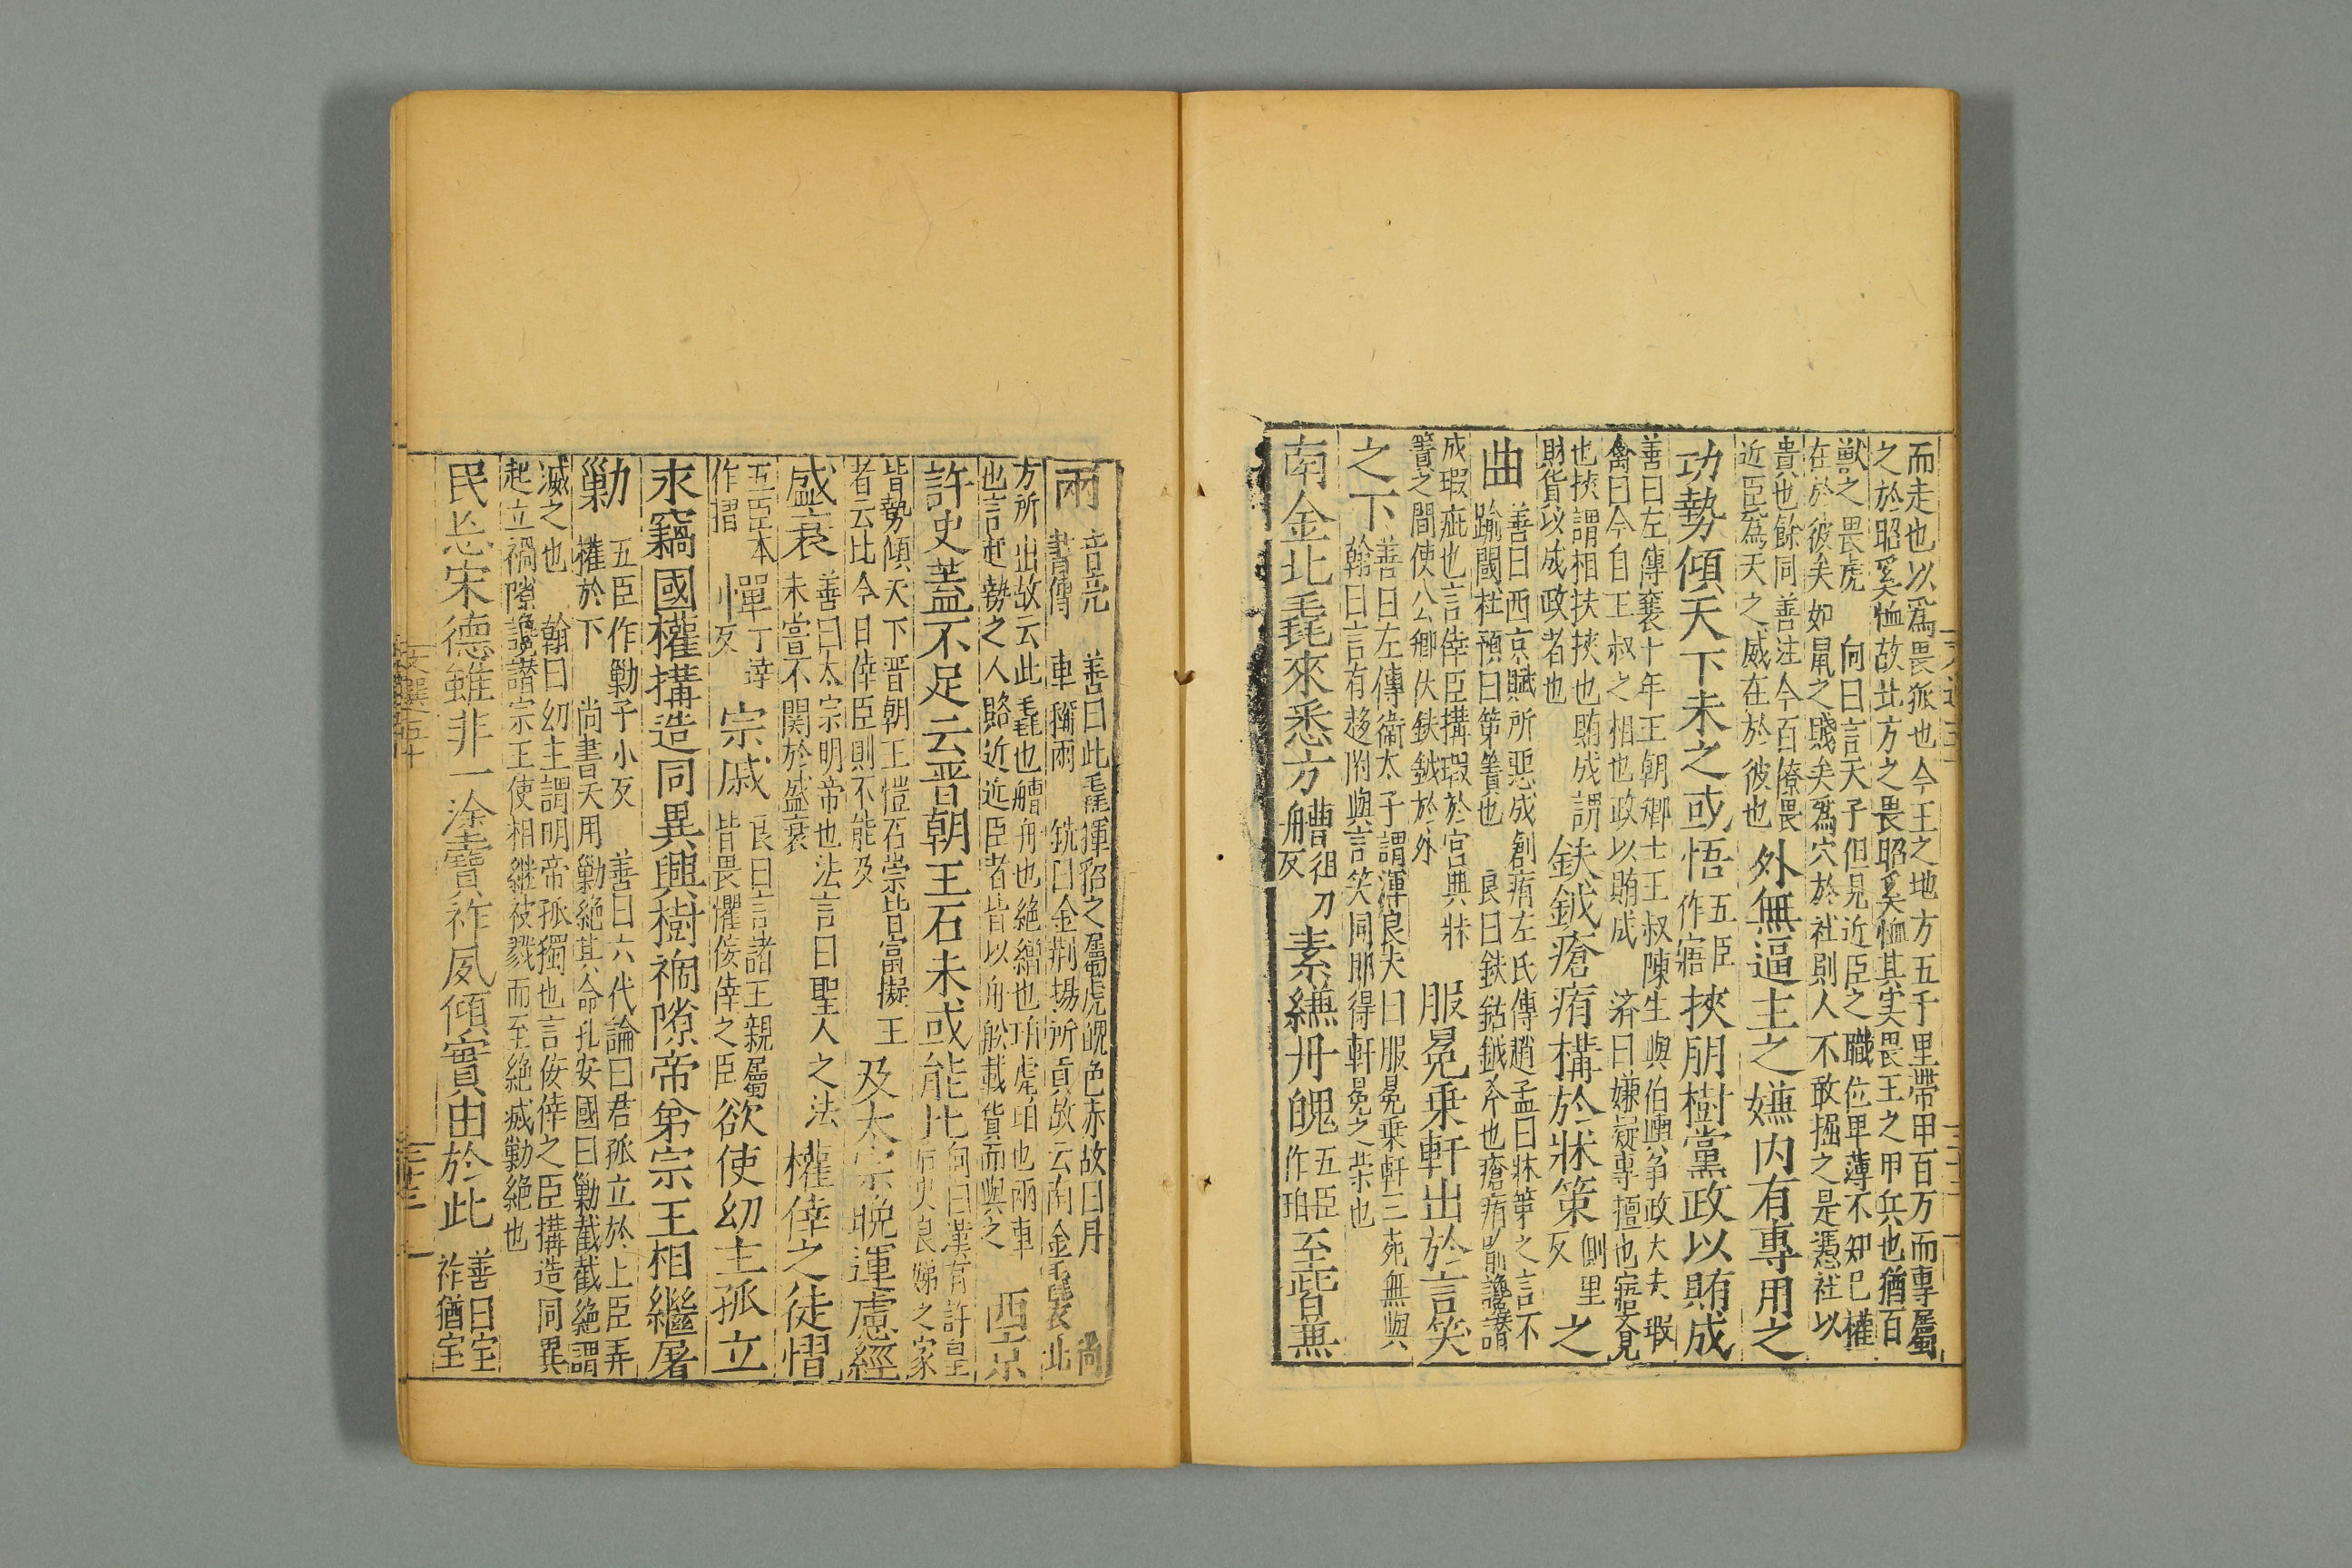 而走也以爲畏狐也今王之地方五千里帶甲百万而專屬
之於昭奚恤故北方之畏昭奚恤其实畏王之甲兵也猶百
獸之畏虎 向曰言天子但見近臣之職位卑薄不知已權
在於彼矣如鼠之賤矣爲穴於社則人不敢掘之是憑社以
貴也餘同善注今百僚畏
近臣爲天之威在於彼也
外無逼主之嫌内有專用之
功勢傾天下未之或悟
五臣
作寤
挾朋樹黨政以賄成
善曰左傳襄十年王朝卿士王叔陳生與伯輿争政大夫瑕
禽曰今自王叔之相也政以賄成 濟曰嫌疑專擅也寤覺
也挾謂相扶挾也賄成謂
財貨以成政者也
鈇鉞瘡痏構於牀笫
側里
反
之
曲
善曰西京賦所惡成創痏左氏傳趙孟曰牀笫之言不
踰閾杜預曰第簀也 良曰鈇鉆鉞斧也瘡痏喻讒譖
成瑕疵也言倖臣搆瑕於宫輿牀
簀之間使公卿伏鈇鉞於外
服冕乗軒出於言笑
之下
善曰左傳衞太子謂渾良夫曰服冕乗軒三死無與
翰曰言有趍附與言笑同即得軒冕之榮也
南金北毳來悉方艚
徂刀
反
素縑丹魄
五臣
作珀
至皆兼
兩
音亮 善曰此毳獋貂之屬虎魄色赤故曰丹 尚
書傳 車稱兩 銑曰金荆揚所貢故云南金毛裘北
方所出故云北毳也艚舟也絶繒也珀虎珀也兩車
也言趍勢之人賂近近臣者皆以舟舩載貨而與之
西京
許史蓋不足云晋朝王石未或能比
向曰漢有許皇
后史良娣之家
皆勢傾天下晋朝王愷石崇皆富擬王
者云比今日倖臣則不能及
及太宗晚運慮經
盛衰
善曰太宗明帝也法言曰聖人之法
未嘗不関於盛衰
權倖之徒慴
五臣本
作摺
憚
丁達
反
宗戚
良曰言諸王親屬
皆畏懼佞倖之臣
欲使幼主孤立
永竊國權搆造同異興樹禍隙帝弟宗王相繼屠
勦
五臣作勦子小反 善曰六代論曰君孤立於上臣弄
權於下 尚書天用勦絶其命孔安國曰勦截截絶謂
滅之也 翰曰幼主謂明帝孤獨也言佞倖之臣搆造同異
起立禍隙讒譖宗王使相継被戮而至絶滅勦絶也
民忘宋德雖非一塗寶祚夙傾實由於此
善曰寶
祚猶寶